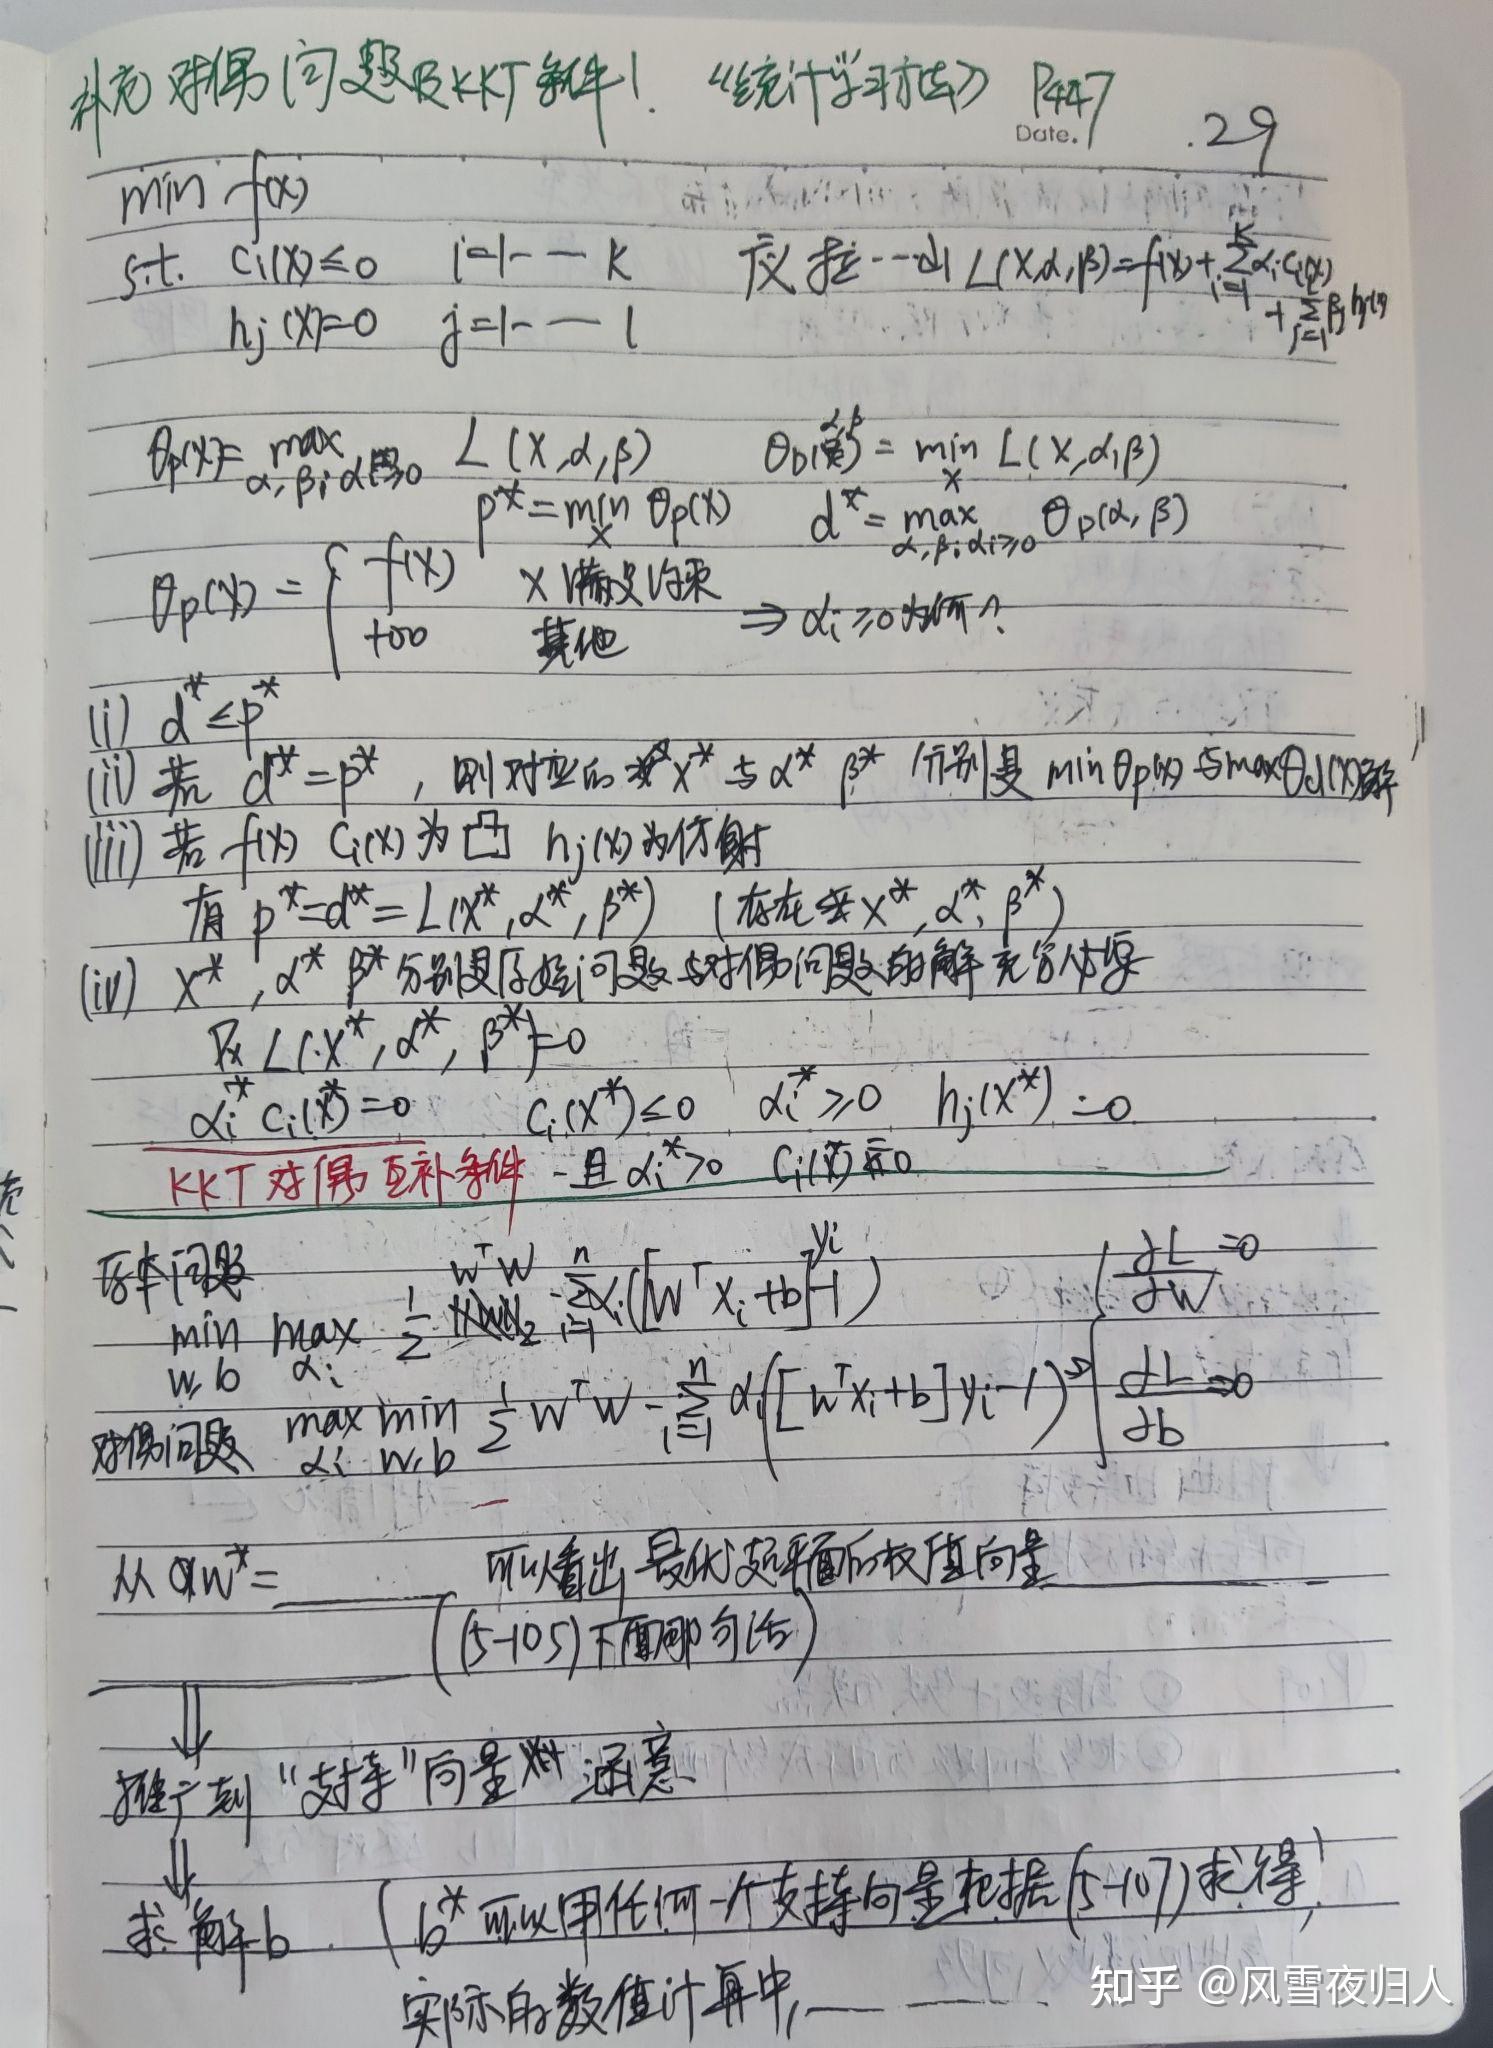 补充对偶问题及KKT条件! 《统计学习方法》 P447
Date. .29
min f(x)
s.t. ci(x)≤0 i=1-…-k L(x,α,β)=f(x)+∑_{i=1}^{k}αi ci(x)
hj(x)=0 j=1-…-l +∑_{j=1}βj hj(x)
θp(x)= max_{α,β;αi≥0} L(x,α,β) θD(α,β)=min_x L(x,α,β)
p*=min_x θp(x) d*=max_{α,β;αi≥0} θD(α,β)
θp(x)={ f(x) x满足约束
+∞ 其他 ⇒αi≥0为何?
(i) d*≤p*
(ii) 若 d*=p*, 则对应的x*与α* β*分别是minθp(x)与maxθd(x)解
(iii) 若 f(x) ci(x)为凸 hj(x)为仿射
有 p*=d*=L(x*,α*,β*) (存在x*,α*,β*)
(iv) x*,α* β*分别是原始问题与对偶问题的解充分必要
∇x L(x*,α*,β*)=0
αi* ci(x*)=0 ci(x*)≤0 αi*≥0 hj(x*)=0
KKT对偶互补条件 - 且αi*>0 ci(x*)=0
原本问题 min_{w,b} max_{αi} 1/2 w^T w -∑_{i=1}^{n}αi([w^T xi+b]yi-1) { ∂L/∂w=0
对偶问题 max_{αi} min_{w,b} 1/2 w^T w-∑_{i=1}^{n}αi([w^T xi+b]yi-1) ∂L/∂b=0
从w*=____ 可以看出,最优超平面的权值向量____
____ ((5-105)下面那句话)
⇓
推广到"支持"向量 涵意
⇓
求解b (b*可以用任何一个支持向量根据(5-107)求得,
实际的数值计算中,____
知乎 @风雪夜归人